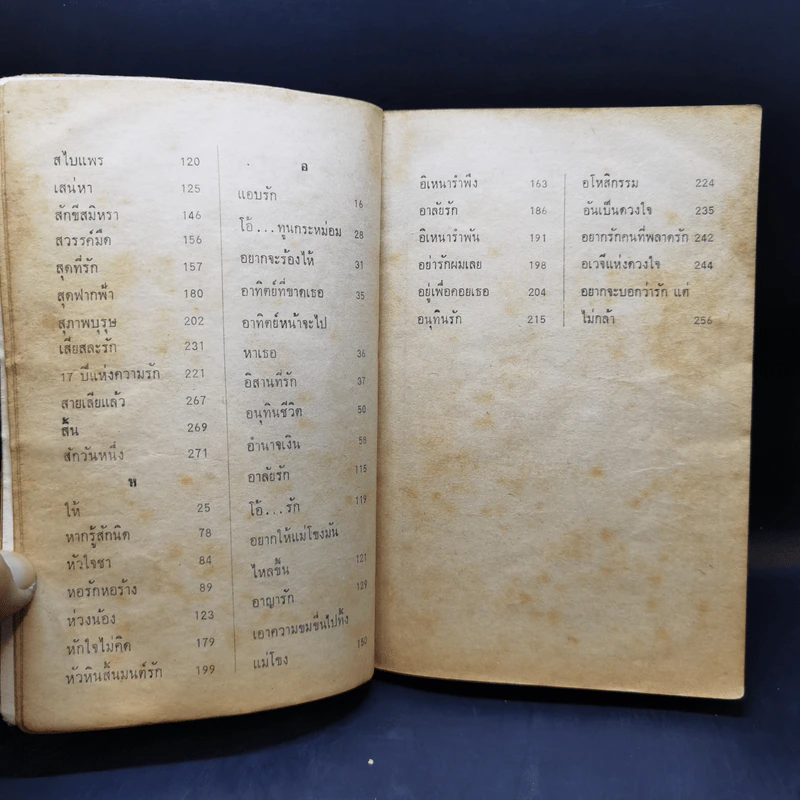 สไบแพร 120
เสน่หา 125
สักขีสมิหรา 146
สวรรค์มืด 156
สุดที่รัก 157
สุดฟากฟ้า 180
สุภาพบุรุษ 202
เสียสละรัก 231
17 ปีแห่งความรัก 221
สายเสียแล้ว 267
ส้น 269
สักวันหนึ่ง 271
ห
ให้ 25
หากรู้สักนิด 78
หัวใจชา 84
หอรักหอร้าง 89
ห่วงน้อง 123
หักใจไม่คิด 179
หัวหินส้นมนต์รัก 199
อ
แอบรัก 16
โอ้...ทูนกระหม่อม 28
อยากจะร้องไห้ 31
อาทิตย์ที่ขาดเธอ 35
อาทิตย์หน้าจะไป
หาเธอ 36
อิสานที่รัก 37
อนุทินชีวิต 50
อำนาจเงิน 58
อาลัยรัก 115
โอ้...รัก 119
อยากให้แม่โขงมัน
ไหลขึ้น 121
อาญารัก 129
เอาความขมขื่นไปทิ้ง
แม่โขง 160
อิเหนารำพึง 163
อาลัยรัก 186
อิเหนารำพัน 191
อย่ารักผมเลย 198
อยู่เพื่อคอยเธอ 204
อนุทินรัก 215
อโหสิกรรม 224
อันเป็นดวงใจ 235
อยากรักคนที่พลาดรัก 242
อเวจีแห่งดวงใจ 244
อยากจะบอกว่ารัก แต่
ไม่กล้า 256